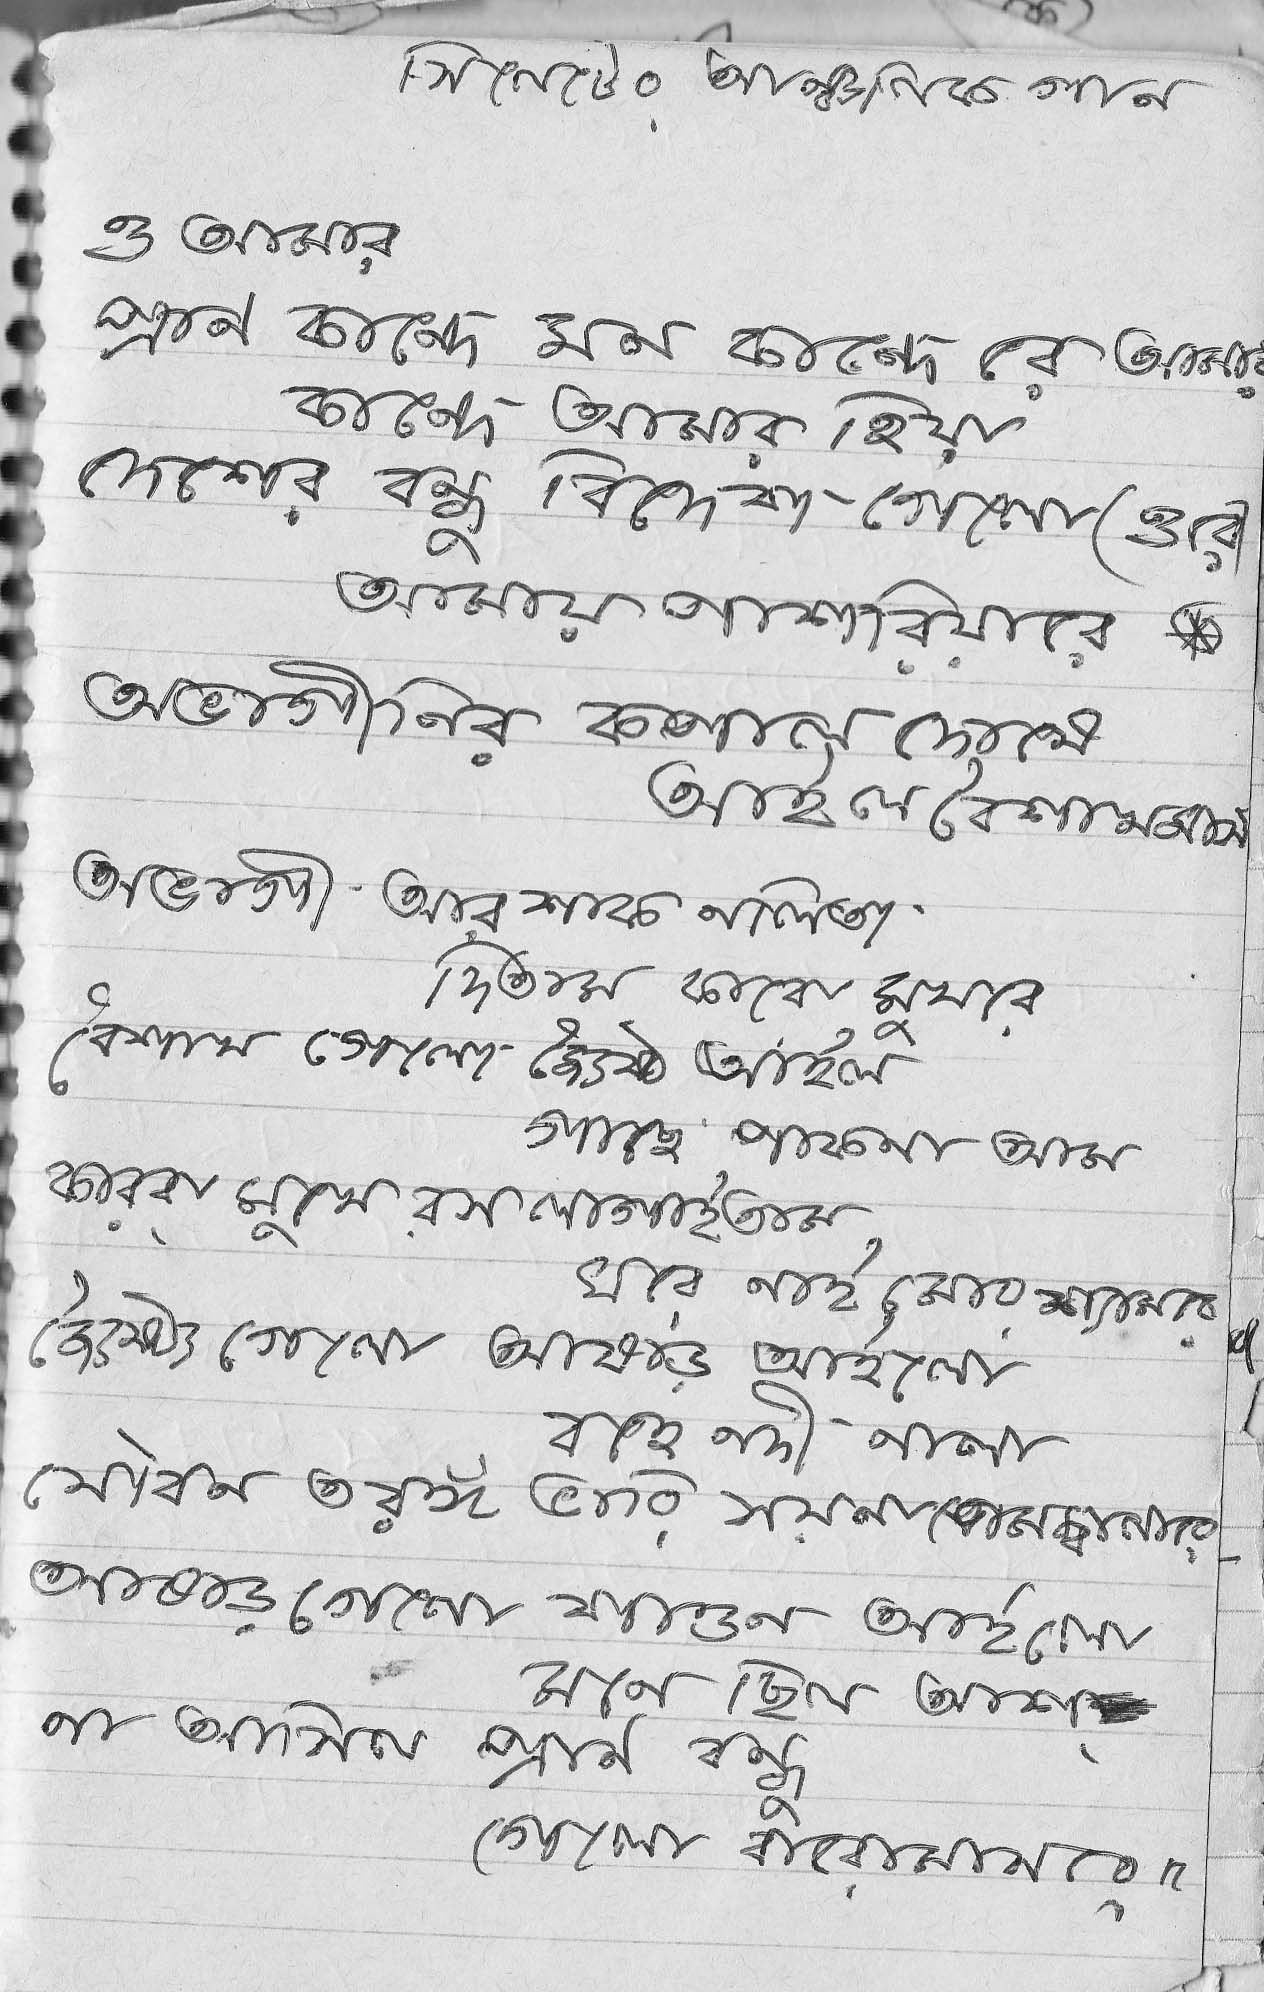 সিলেটের আঞ্চলিক গান
ও আমার
প্রান কান্দে মন কান্দে রে আমার
কান্দে আমার হিয়া
দেশের বন্ধু বিদেশ গেলো (ওরে)
আমায় পাশরিয়ারে
অভাগীনির কপাল দোষে
আইল বৈশাখমাস
অভাগী আর শাক নালিতা
দিতাম কারো মুখরে
বৈশাখ গেলো জৈষ্ঠ আইল
গাছে পাকনা আম
কারবা মুখে রস লাগাইতাম
ঘরে নাই মোর শ্যামরে
জৈষ্ঠ গেলো আষাড় আইলো
বহে নদী নালা
যৌবন তরঙ্গ ভারি সয়না
আষাড় গেলো ফাগুন আইলো
মনে ছিল আশা
না আসিল প্রান বন্ধু
গেলো বারোমাসরে॥